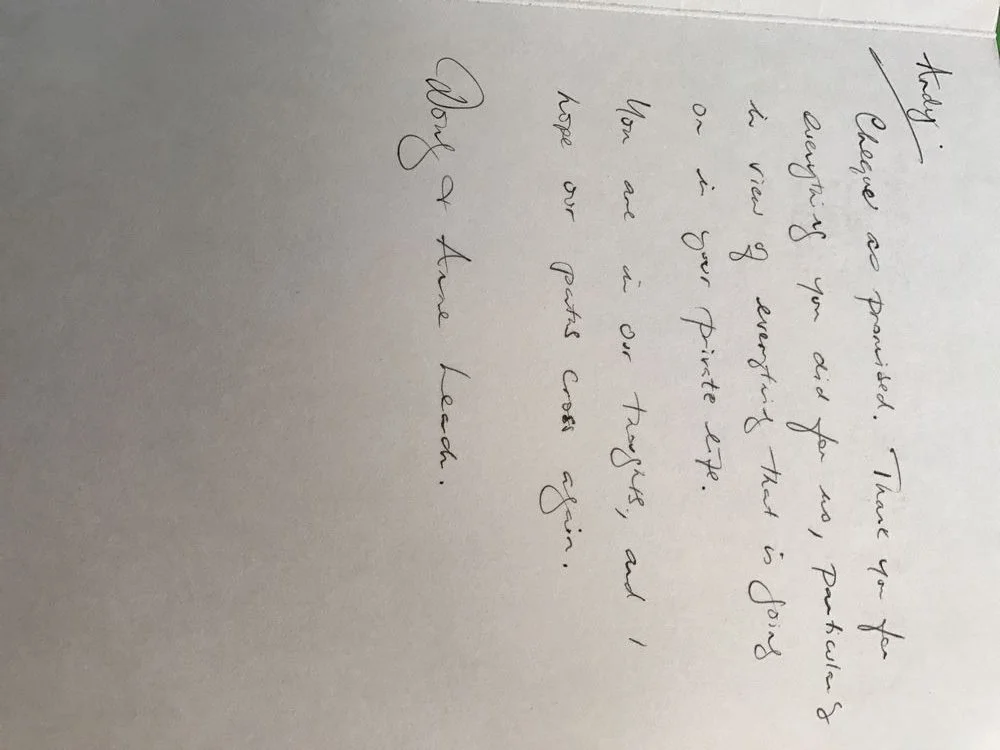 Andy
Cheque as promised. Thank you for
everything you did for us, particularly
in view of everything that is going
on in your private life.
You are in our thoughts, and I
hope our paths cross again.
Doug & Anne Leach.